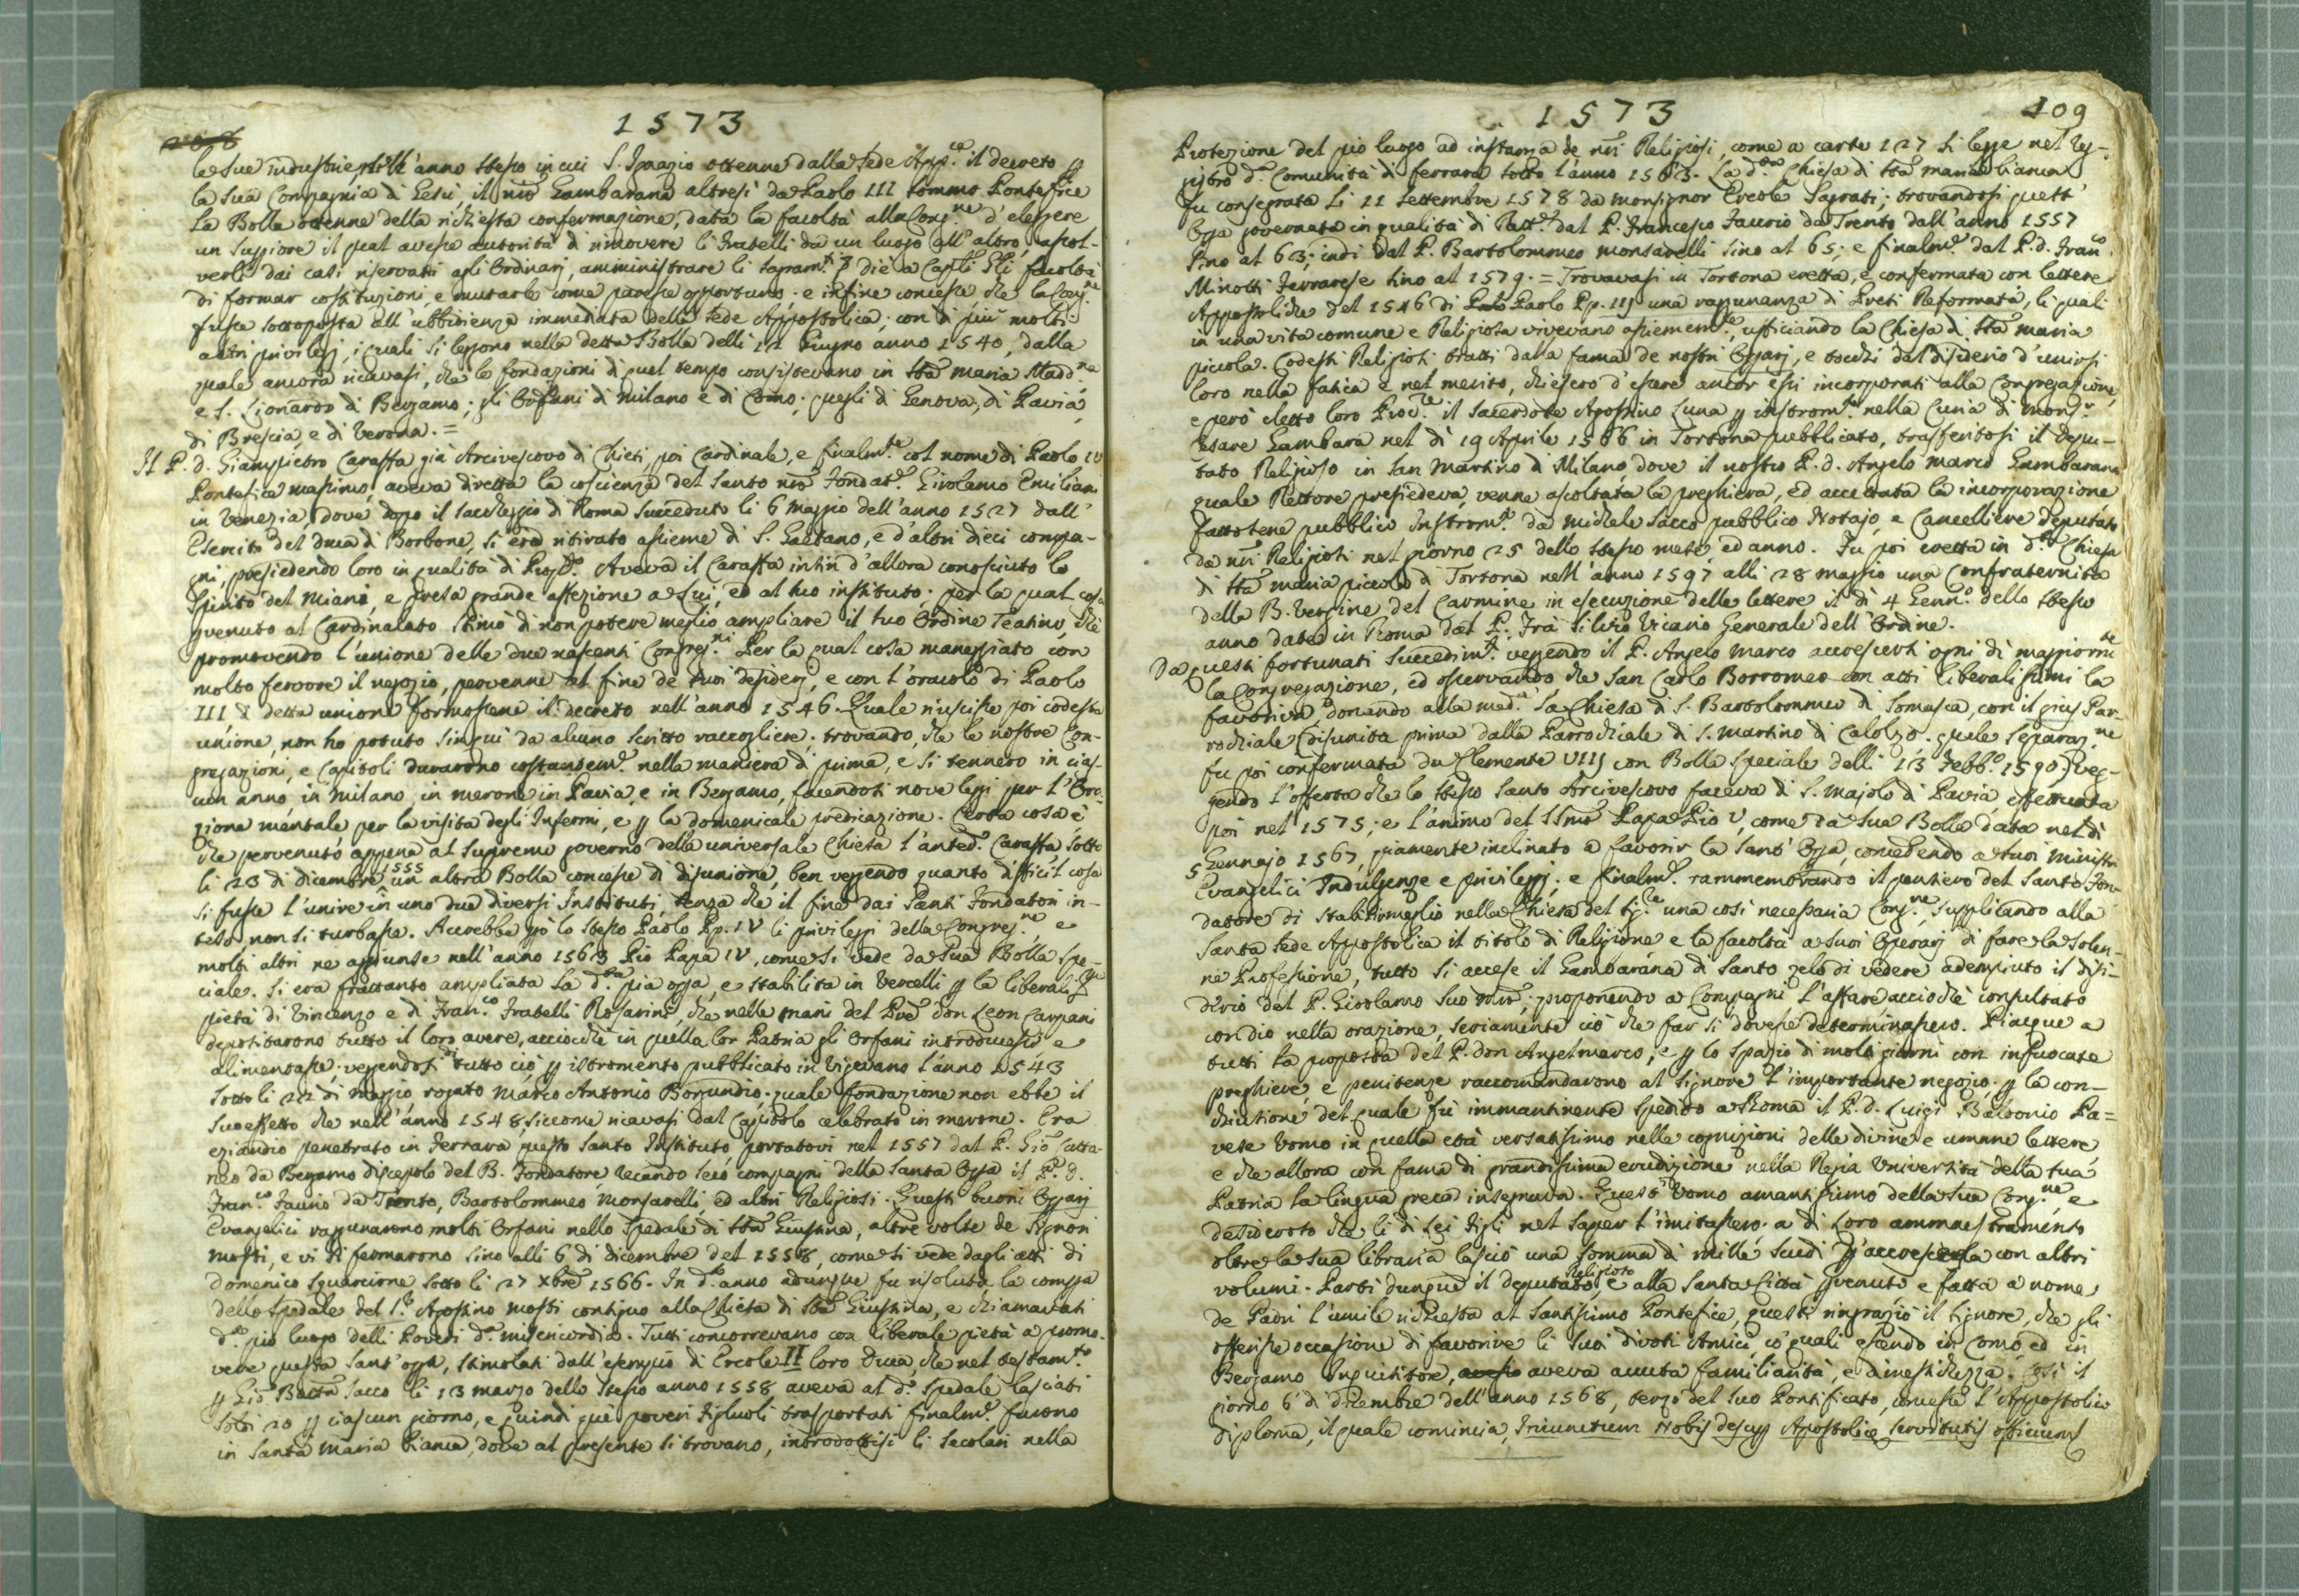 1573
le sue industrie nell'anno stesso in cui S. Ignazio ottenne dalla Sede App.ca il decreto p
la sua Compagnia di Gesù, il nro Gambarana altresì da Paolo III sommo Pontefice
La Bolla ottenne della richiesta confermazione, data la facoltà alla Cong.ne d'eleggere
un Suppiore il qual avesse autorità di rimovere li Fratelli da un luogo all'altro, assol-
verli dai casi riservati agli Ordinarj, amministrare li Sagram.ti; diè a Cap.li Gli facoltà
di formar costituzioni, e mutarle come paresse opportuno; e infine concesse, che la Cong.ne
fusse sottoposta all'ubbidienza immediata della Sede Appostolica; con di più molti
altri privilegj, i quali si leggono nella detta Bolla delli 11 Giugno anno 1540, dalla
quale ancora ricavasi, che le fondazioni di quel tempo consistevano in Sta Maria Madd.na
e S. Lionardo di Bergamo; gli Orfani di Milano e di Como; quegli di Genova, di Pavia,
di Brescia, e di Verona. =
Il P. d. Giampietro Caraffa già Arcivescovo di Chieti, poi Cardinale, e finalm.te col nome di Paolo IV
Pontefice massimo, aveva diretta la coscienza del Santo nro Fondat.e Girolamo Emilian
in Venezia, dove dopo il saccheggio di Roma succeduto li 6 Maggio dell'anno 1527 dall'
Esercito del Duca di Borbone, si era ritirato assieme di S. Gaetano, e d'altri dieci compa-
gni, presiedendo loro in qualità di Prop.to. Aveva il Caraffa insin d'allora conosciuto lo
Spirito del Miani, e presa grande affezione a Lui, ed al suo instituto; per la qual cosa
pvenuto al Cardinalato stimò di non potere meglio ampliare il suo Ordine Teatino, che
promovendo l'unione delle due nascenti Congreg.ni. Per la qual cosa maneggiato con
molto fervore il negozio, pervenne al fine de suoi desiderj, e con l'oracolo di Paolo
III di detta unione formossene il decreto nell'anno 1546. Quale riuscisse poi codesta
unione, non ho potuto sinqui da alcuno scritto raccogliere; trovando, che le nostre Con-
gregazioni, e Capitoli durarono costantem.e nella maniera di prima, e si tennero in cias-
cun anno, in Milano, in Merone, in Pavia, e in Bergamo, facendosi nove legi per l'Ora-
zione mentale per la visita degli Infermi, e p la domenicale predicazione. Certa cosa è
che pervenuto appena al supremo governo della universale Chiesa l'anted.o Caraffa, sotto
li 23 di dicembre 1555 un altra Bolla concesse di disunione, ben veggendo quanto difficil cosa
si fusse l'unire in uno due diversi Instituti, senza che il fine dai Santi Fondatori in-
teso non si turbasse. Accrebbe però lo stesso Paolo Pp. IV li privilegj della Congreg.ne, e
molti altri ne aggiunse nell'anno 1563 Pio Papa IV, come si vede da sua Bolla spe-
ciale. Si era frattanto ampliata la d.ta pia opra, e stabilita in Vercelli p la liberaliss.ma
pietà di Vincenzo e di Fran.co Fratelli Rosarini, che nelle mani del Pre don Leon Carpani
depositarono tutto il loro avere, acciocchè in quella lor Patria gli Orfani introducesse e
alimentasse; veggendosi di tutto ciò p istromento pubblicato in Vigevano l'anno 1543
sotto li 22 di Maggio rogato Marco Antonio Borgundio, quale fondazione non ebbe il
suo effetto che nell'anno 1548, siccome ricavasi dal Capitolo celebrato in Merone. Era
eziandio penetrato in Ferrara questo Santo Instituto, portatovi nel 1557 dal P. Gio Catta-
neo da Bergamo discepolo del B. Fondatore, recando seco compagni della santa opra il P. d.
Fran.co Faurio da Trento, Bartolommeo Monsarelli, ed altri Religiosi. Questi buoni Operarj
Evangelici raggunarono molti Orfani nello Spedale di Sta Giustina, altre volte de Signori
Mosti, e vi si formarono sino alli 6 di dicembre del 1558, come si vede dagli atti di
Domenico Squarcione sotto li 27 Xbre 1566. In d.to anno adunque fu risoluta la compra
dello Spedale del S.r Agostino Mosti contiguo alla Chiesa di Sta Giustina, e chiamavasi
d.to pio luogo delli Poveri d.a misericordia. Tutti concorrevano con liberale pietà a promo-
vere questa sant'opra, stimolati dall'esempio di Ercole II loro Duca, che nel testam.to
p Gio Batta Sacco li 13 Marzo dello stesso anno 1558 aveva al d.o Spedale lasciati
soldi 20 p ciascun giorno, e quindi que poveri figliuoli trasportati finalm.e furono
in Santa Maria bianca, dove al presente si trovano, introdottisi li Secolari nella
1573
109
Protezione del pio luogo ad instanza de nri Religiosi, come a carte 127 si legge nel Re-
gistro d.a Comunità di Ferrara sotto l'anno 1563. La d.ta Chiesa di Sta Maria bianca
fu consegrata li 11 Settembre 1578 da Monsignor Ercole Sagrati; trovandosi quest'
Opra governata in qualità di Rett.e dal P. Francesco Faurio da Trento dall'anno 1557
sino al 63; indi dal P. Bartolommeo Monsarelli sino al 65; e finalm.e dal P. d. Fran.co
Minotti Ferrarese sino al 1579. = Trovavasi in Tortona eretta, e confermata con lettere
Appostoliche del 1546 di Paolo Pp. III una raggunanza di Preti Reformata, li quali
in una vita comune e Religiosa vivevano assiemem.te, ufficiando la Chiesa di Sta Maria
piccola. Codesti Religiosi tratti dalla fama de nostri Operarj, e tocchi dal disiderio d'unirsi
loro nella fatica e nel merito, chiesero d'essere ancor essi incorporati alla Congregazione,
e però eletto loro Proc.re il Sacerdote Agostino Luna p instrom.to nella Curia di Mons.r
Cesare Gambara nel dì 19 Aprile 1566 in Tortona pubblicato, trasferitosi il depu-
tato Religioso in San Martino di Milano dove il nostro P. d. Angelo Marco Gambarana
quale Rettore presiedeva, venne ascoltata la preghiera, ed accettata la incorporazione
fattosene pubblico Instrom.to da Michele Sacco pubblico Notajo, e Cancelliere deputato
da nri Religiosi nel giorno 25 dello stesso mese ed anno. Fu poi eretta in d.ta Chiesa
di Sta Maria piccola di Tortona nell'anno 1597 alli 28 Maggio una Confraternita
della B. Vergine del Carmine in esecuzione delle lettere il dì 4 Genn.o dello stesso
anno date in Roma dal P. Frà Silvio Vicario Generale dell'Ordine.
Da questi fortunati succedim.ti veggendo il P. Angelo Marco accrescersi ogni dì maggiorm.te
la Congregazione, ed osservando che San Carlo Borromeo con atti liberalissimi la
favoriva, donando alla med.a la Chiesa di S. Bartolommeo di Somasca, con il gius Par-
rochiale (disunita prima dalla Parrochiale di S. Martino di Calolzo. quale separaz.ne
fu poi confermata da Clemente VIII con Bolla speciale delli 13 Febb.o 1590) veg-
gendo l'offerta che lo stesso Santo Arcivescovo faceva di S. Majolo di Pavia effettuata
poi nel 1575; e l'animo del SSmo Papa Pio V, come da sua Bolla data nel dì
5 Gennajo 1567, piamente inclinato a favorir la Sant' Opra, concedendo a suoi Ministri
Evangelici Indulgenze e privilegj; e finalm.e rammemorando il pensiero del Santo Fon-
datore di stabilir meglio nella Chiesa del Sig.re una così necessaria Cong.ne, supplicando alla
Santa Sede Appostolica il titolo di Religione e la facoltà a suoi Operarj di fare la Solen-
ne Professione, tutto si accese il Gambarana di Santo zelo di vedere adempiuto il disi-
derio del P. Girolamo suo Mro; proponendo a Compagni l'affare acciochè consultato
con dio nella orazione, seriamente ciò che far si dovesse determinassero. Piacque a
tutti la proposta del P. don Angelmarco, e p lo spazio di molti giorni con infuocate
preghiere, e penitenze raccomandarono al Signore l'importante negozio; p la con-
chiusione del quale fù immantinente spedito a Roma il P. d. Luigi Baldonio Pa=
vese Uomo in quella età versatissimo nelle cognizioni delle divine e umane lettere
e che allora con fama di grandissima erudizione nella Regia Università della sua
Patria la lingua greca insegnava. Quest'Uomo amantissimo della sua Cong.ne, e
desideroso che li di Lei figli nel saper l'imitassero. a di Loro ammaestramento
oltre la sua libraria lasciò una somma di mille scudi p accrescerla con altri
volumi. Partì dunque il deputato Religioso, e alla Santa Città pvenuto e fatta a nome
de Padri l'umile richiesta al Santissimo Pontefice, questi ringraziò il Signore, che gli
offerisse occasione di favorire li suoi divoti Amici, co' quali essendo in Como ed in
Bergamo Inquisitore, aveva avuta familiarità, e dimestichezza. Così il
giorno 6 di Dicembre dell'anno 1568, terzo del suo Pontificato, concesse l'Appostolico
diploma, il quale comincia, Iniunctum Nobis desup Apostolice Servitutis officium